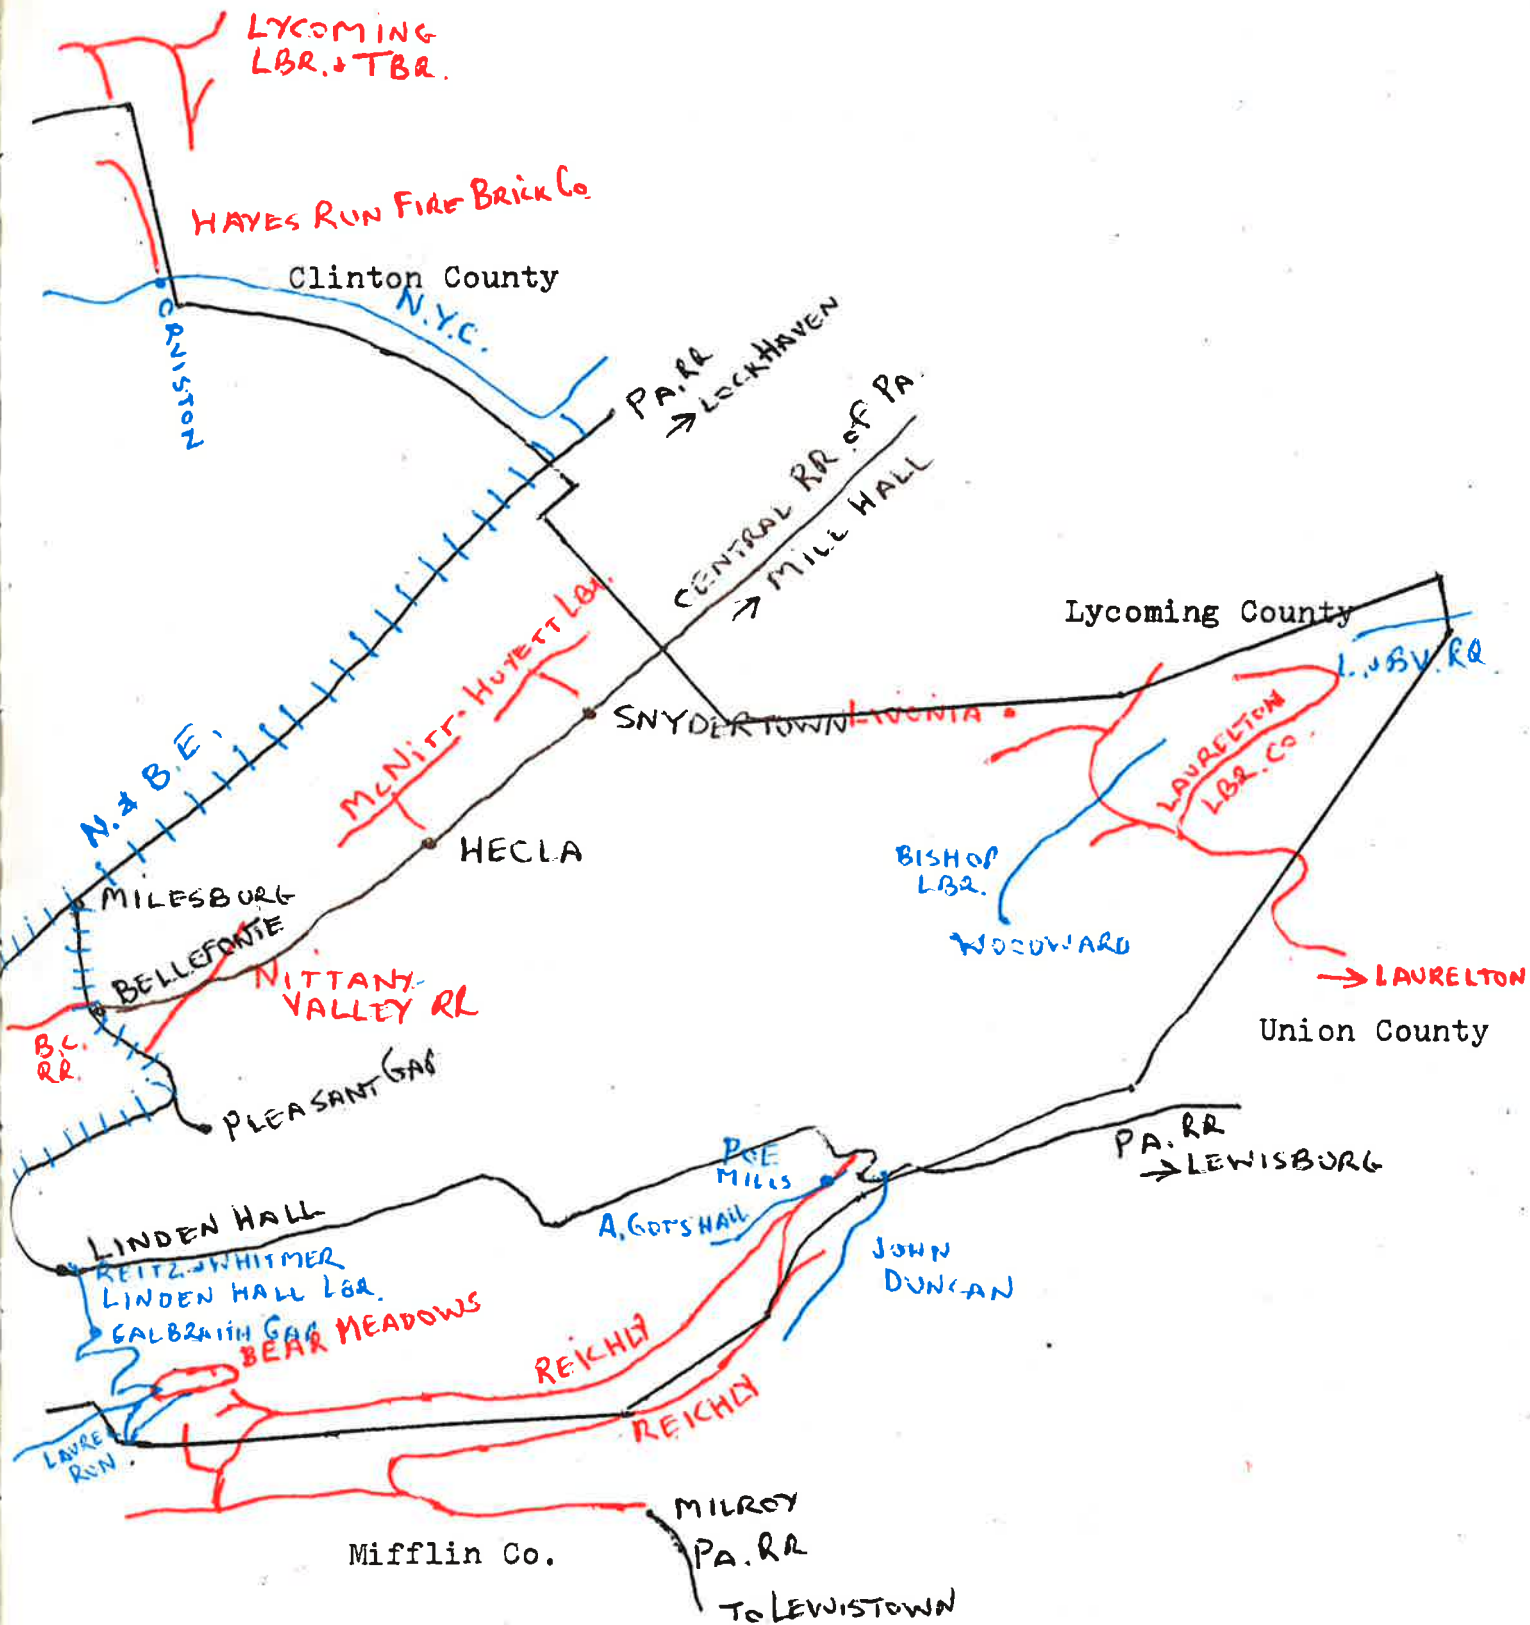 LYCOMING
LBR. & TBR.
HAYES RUN FIRE BRICK Co
Clinton County
N.Y.C.
ORVISTON
PA. RR
→ LOCK HAVEN
CENTRAL RR. of PA.
→ MILL HALL
Lycoming County
L. & BV. RR.
McNITT-HUYETT LBR.
SNYDERTOWN
LIVONIA
LAURELTON
LBR. CO.
N. & B.E.
HECLA
BISHOP
LBR.
WOODWARD
MILESBURG
BELLEFONTE
NITTANY
VALLEY RR
→ LAURELTON
B.C.
RR.
Union County
PLEASANT GAP
PA. RR
→ LEWISBURG
POE
MILLS
A. GOTSHALL
LINDEN HALL
REITZ & WHITMER
LINDEN HALL LBR.
JOHN
DUNCAN
GALBRAITH GAP
BEAR MEADOWS
REICHLY
REICHLY
LAUREL
RUN.
MILROY
PA. RR
TO LEWISTOWN
Mifflin Co.